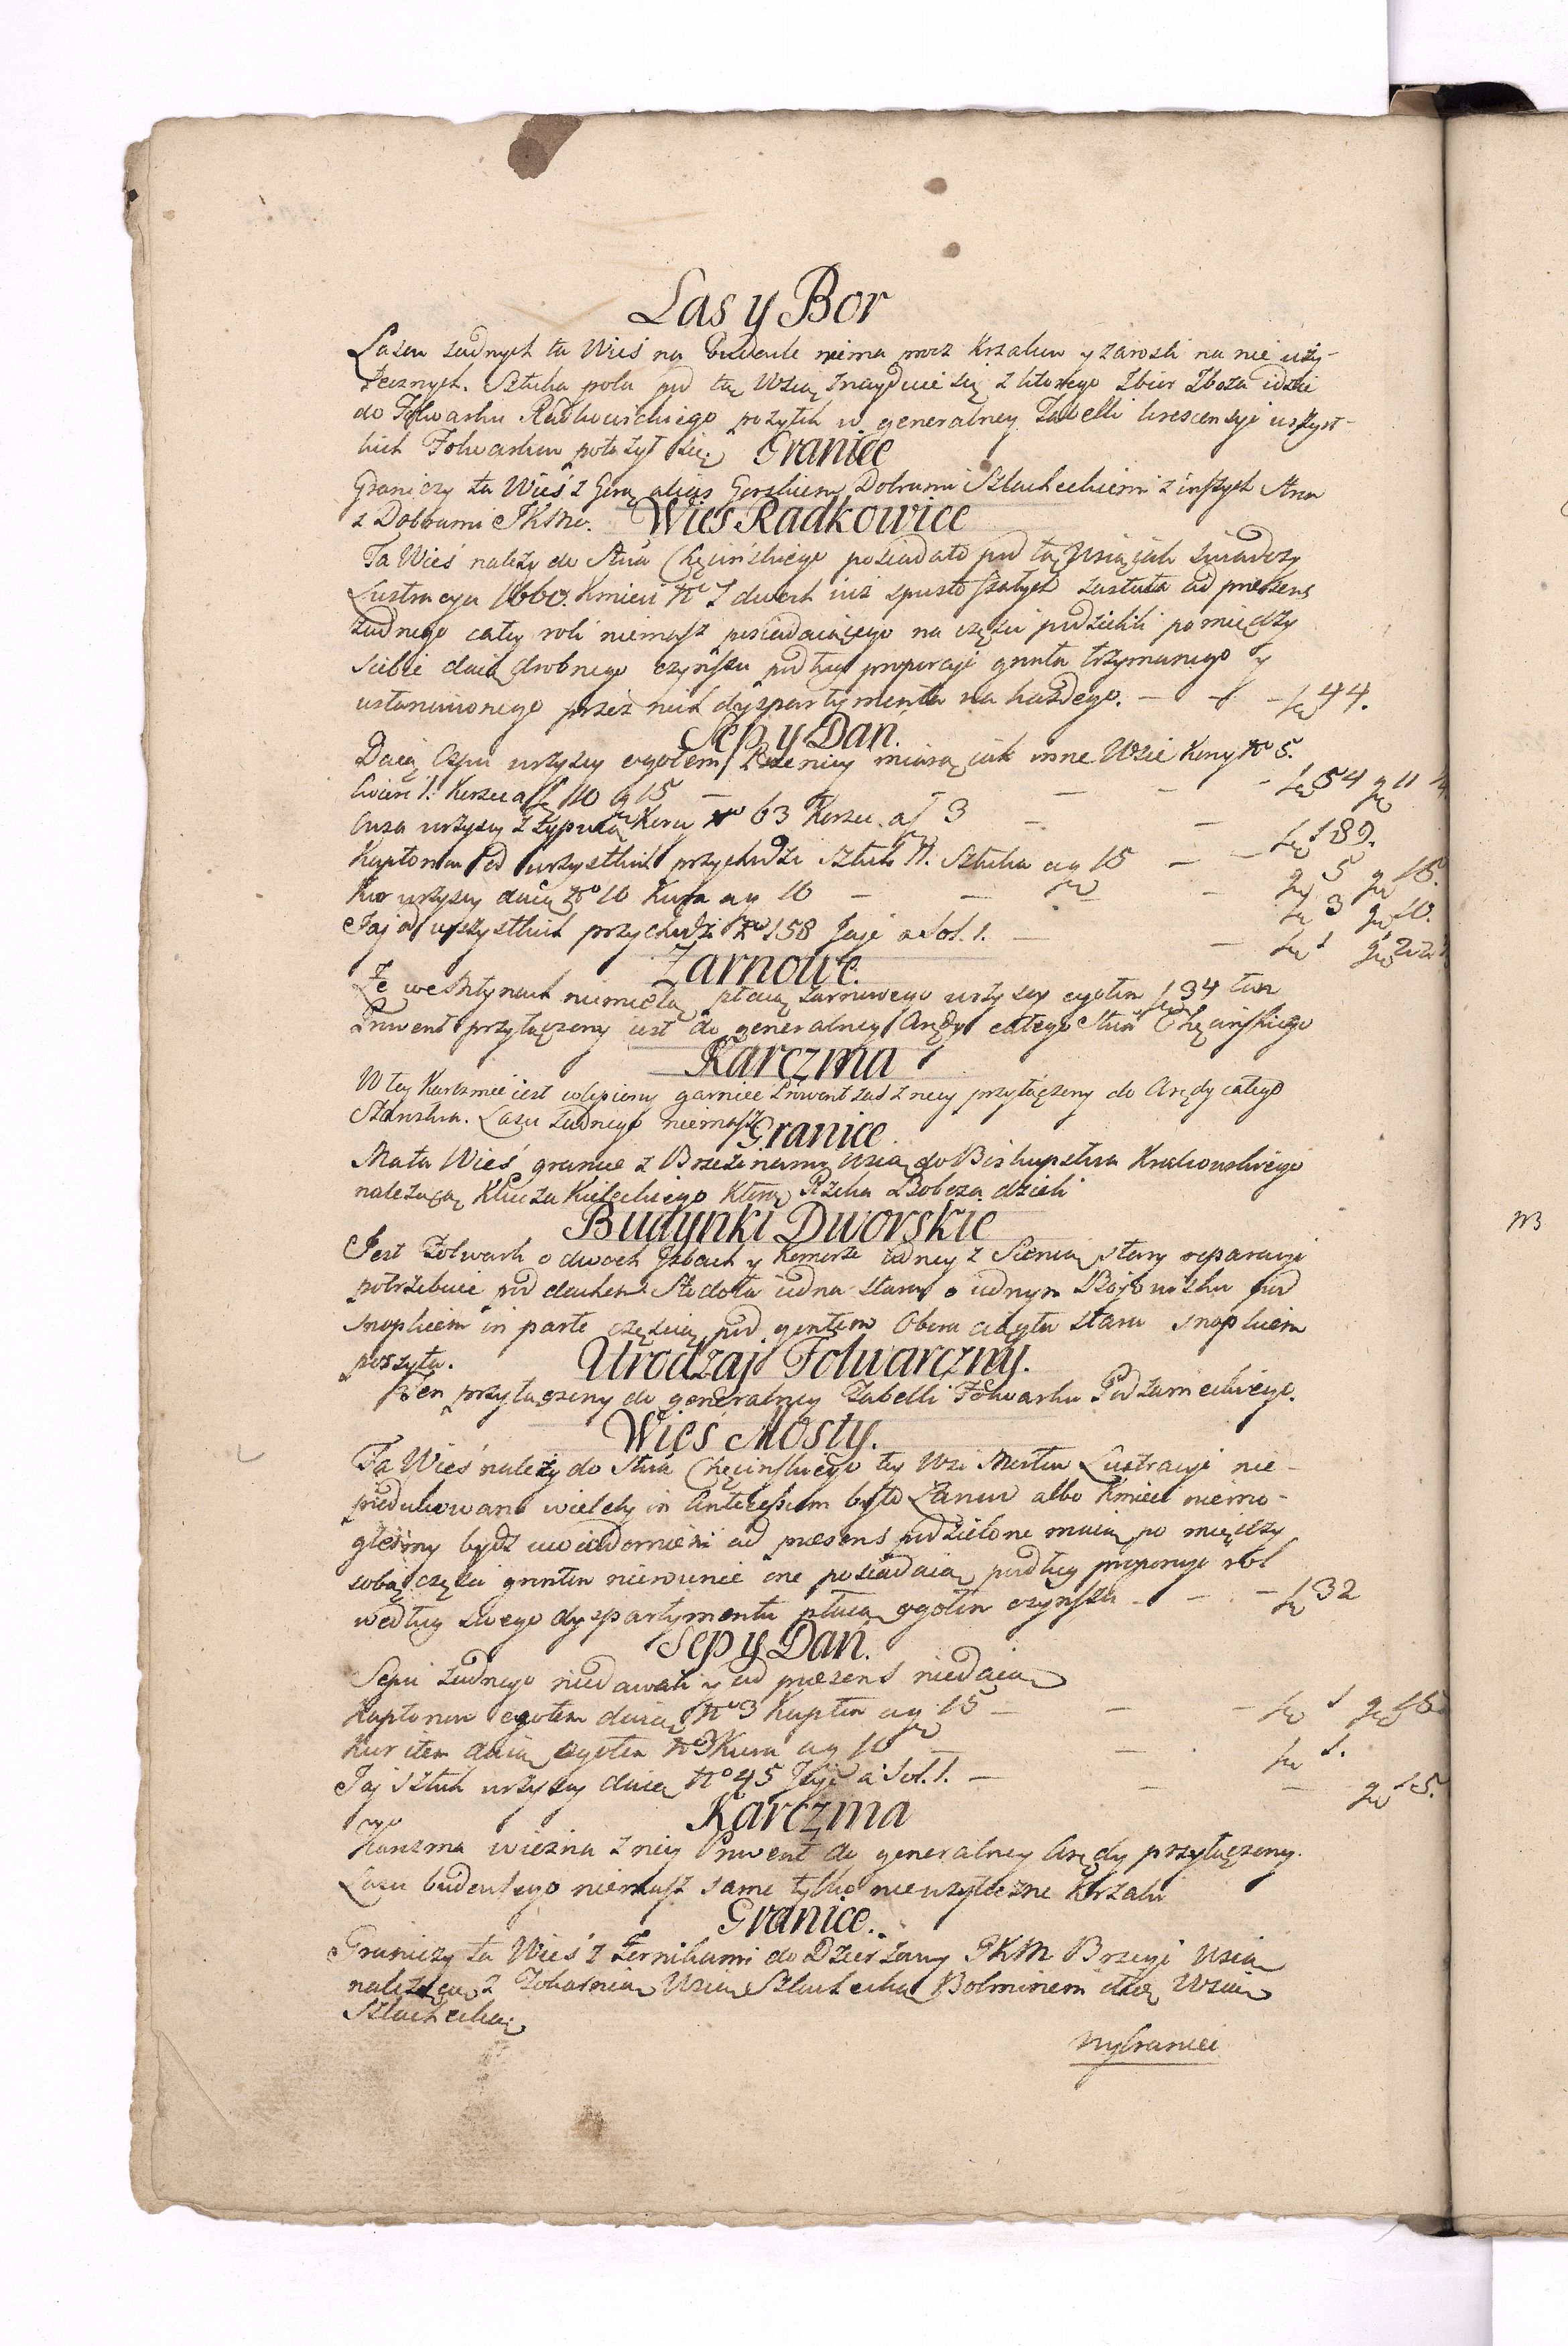 Las y Bor
Lasu żadnych ta Wieś na Budowle nima procz Krzakow y zarosli na nie uży-
tecznych. Sztuka pola pod tą Wsią znayduie się z ktorego Zbior Zboża idzie
do Folwarku Radkowickiego pożytek w generalney Tabelli krescensyi wszyst-
kich Folwarkow położył się. Granice
Graniczy ta Wieś z Gorą alias Dobrami Szlacheckiemi z inszych stron
z Dobrami JKMci. Wieś Radkowice
Ta Wieś należy do Stwa Chęcińskiego posiadało pod tą Wsią jak świadczy
Lustracya 1660. Kmieci No 7 dwoch iuż zastała ad presens
żadnego cały roli niemasz posiadaiącego na części podzielili pomiędzy
siebie daią drobnego czynszu podług proporcyi gruntu trzymanego y
ustanowionego przez nich dyspartymentu na każdego. — — — fl 44.
Sep y Dań.
Daią Sepu wszyscy ogołem Pszenicy miarą jak inne Wsie Korcy No 5.
Cwierć 1. Korzec a fl 10 g 15 — — — fl 54 gr 11
Owsa wszyscy z Korcy No 63 Korzec a f 3 — — fl 189.
Kapłonow od wszystkich przychodzi Sztuk 11. Sztuka a g 15 — — fl 5 gr 15.
Kur wszyscy daią No 10 Kura a g 10 — — — fl 3 gr 10.
Jaj od wszystkich przychodzi No 158 Jaje a Sol. 1. — — fl 1 gr 22
Żarnowe.
Że we Młynach nimielą płacą żarnowego wszyscy ogołem fl 34 ten
Prowent przyłączony iest do generalney Arędy całego Stwa Chęcińskiego
Karczma
W tey Karczmie iest garniec Prowent zaś z niey przyłączony do Arędy całego
Starostwa. Lasu żadnego niemasz Granice.
Mała Wieś granice z Brzezinami Wsią do Biskupstwa Krakowskiego
należącą Klucza Kieleckiego którą Rzeka Bobrza dzieli
Budynki Dworskie
Jest Folwark o dwoch Izbach y Komorze iedney z Sienią stary reparacyi
potrzebuie pod dachem Stodoła iedna stara o iednym Boiowisku pod
snopkiem in parte częścią pod Obora stara snopkiem
poszyta. Urodzaj Folwarczny.
Ten przyłączony do generalney Tabelli Folwarku Podzameckiego.
Wieś Mosty.
Ta Wieś należy do Stwa Chęcińskiego tey Wsi Lustracyi nie-
produkowano wieleby in było Łanow albo Kmieci niemo-
gliśmy bydź uwiadomieni ad presens podzielone maią po między
sobą części gruntu nierownie one posiadaią podług proporcyi rol
według swego dyspartymentu płacą ogołem czynszu — — — fl 32
Sep y Dań.
Sepu żadnego niedawali y ad presens niedaią
Kapłonow ogołem daią No 3 Kapłon a g 15 — — — fl 1 gr 15
Kur item daią ogołem No 3 Kura a g 10 — — fl 1.
Jaj sztuk wszyscy daią No 45 Jaje a Sol. 1. — — — gr 15.
Karczma
Karczma wiezna z niey Prowent do generalney Arędy przyłączony.
Lasu budowego niemasz same tylko nieużyteczne Krzaki
Granice.
Graniczy ta Wieś z Żernikami do Dzierżawy JKM Brzegi Wsią
należącą z Wsią Szlachecką Bolminem też Wsią
Szlachecką